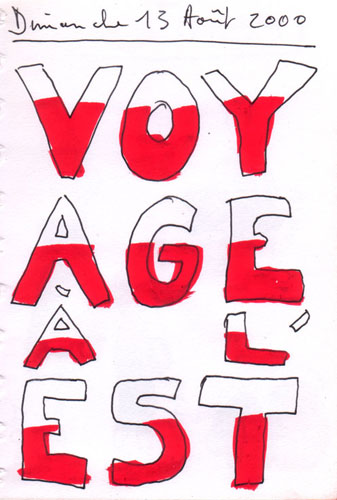 Dimanche 13 Août 2000
VOY
AGE
À L'
EST